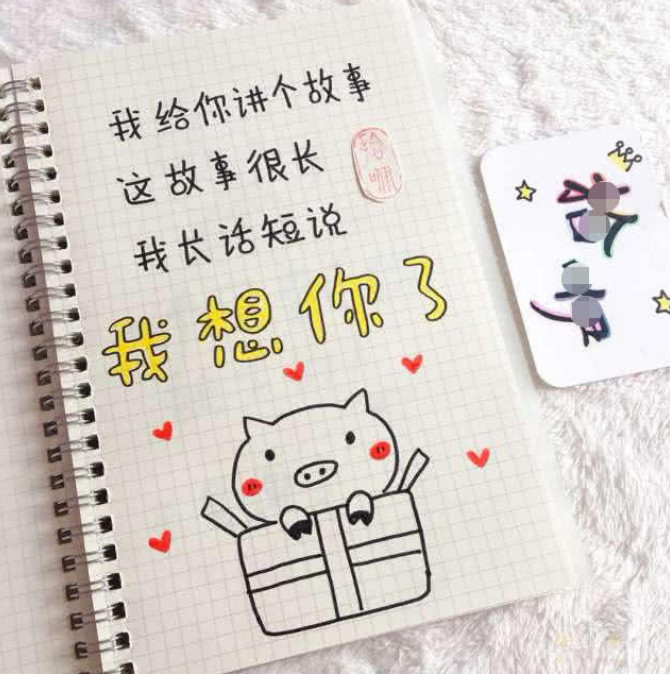 我给你讲个故事
这故事很长
我长话短说
我想你了